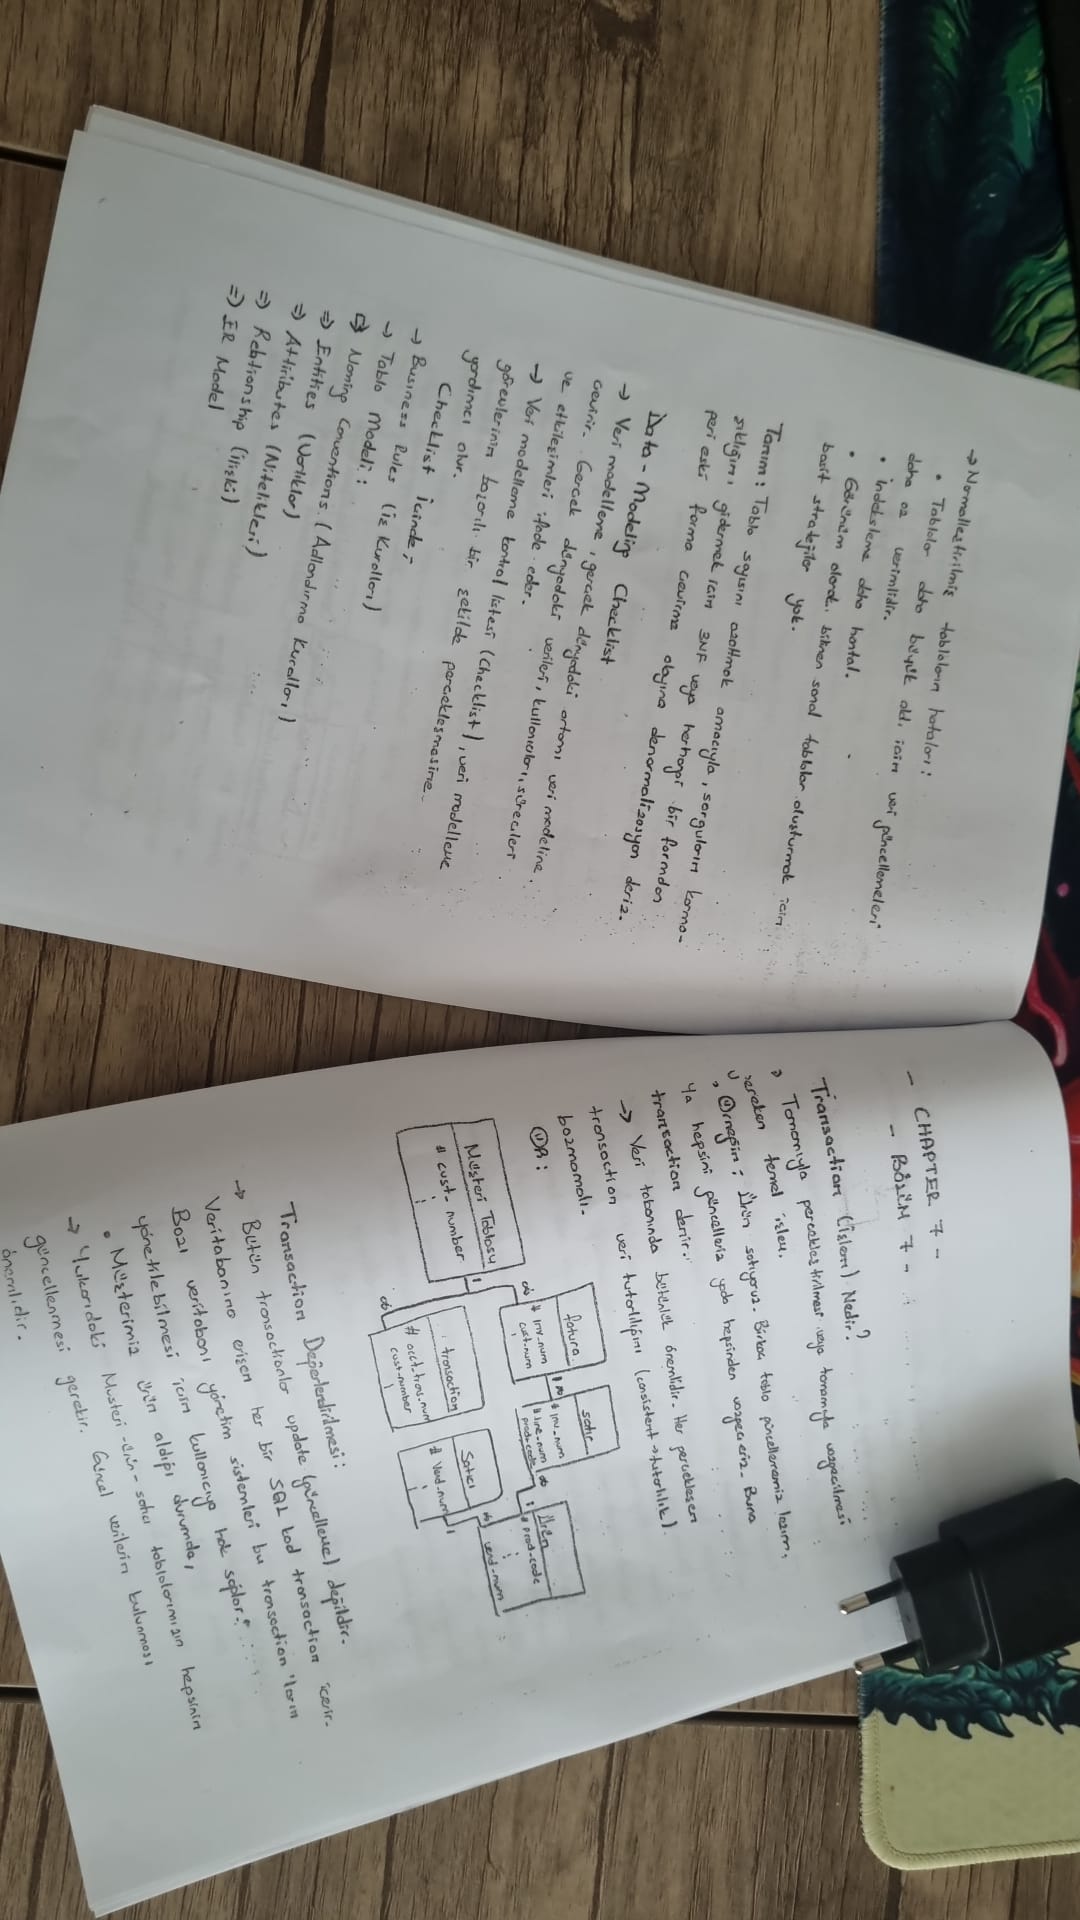 → Normalleştirilmiş tabloların hataları:
• Tablolar daha büyük old. için veri güncellemeleri
daha az verimlidir.
• İndeksleme daha hantal.
• Görünüm olarak bilinen sanal tablolar oluşturmak için
basit stratejiler yok.
Tanım: Tablo sayısını azaltmak amacıyla, sorguların karma-
şıklığını gidermek için 3NF veya herhangi bir formdan
geri eski forma çevirme olayına denormalizasyon deriz.
Data-Modeling Checklist
→ Veri modelleme, gerçek dünyadaki ortamı veri modeline
çevirir. Gerçek dünyadaki verileri, kullanıcıları, süreçleri
ve etkileşimleri ifade eder.
→ Veri modelleme kontrol listesi (Checklist), veri modelleme
görevlerinin başarılı bir şekilde gerçekleşmesine
yardımcı olur.
Checklist içinde;
→ Business Rules (iş Kuralları)
→ Tablo Modeli:
⇒ Naming Conventions (Adlandırma Kuralları)
⇒ Entities (Varlıklar)
⇒ Attiributes (Nitelikleri)
⇒ Relationship (ilişki)
⇒ ER Model
- CHAPTER 7 -
- BÖLÜM 7 -
Transaction (işlem) Nedir?
Tamamıyla gerçekleştirilmesi veya tamamıyla vazgeçilmesi
gereken temel işlem.
Örneğin; Ürün satıyoruz. Birkaç tablo güncellememiz lazım,
Ya hepsini güncelleriz yada hepsinden vazgeçeriz. Buna
transaction denir.
→ Veri tabanında bütünlük önemlidir. Her gerçekleşen
transaction veri tutarlılığını (consistent → tutarlılık)
bozmamalı.
ÖR:
Müşteri Tablosu
# cust-number
fatura
# inv-num
cust-num
satır
# inv-num
# line-num
prod-code
Ürün
# prod-code
vend-num
transaction
# acct-trans-num
cust-number
Satıcı
# Vend-num
Transaction Değerlendirilmesi:
→ Bütün transactionlar update (güncelleme) değildir.
Veritabanına erişen her bir SQL kod transaction içerir.
Bazı veritabanı yönetim sistemleri bu transaction'ların
yönetilebilmesi için kullanıcıya hak sağlar.
• Müşterimiz ürün aldığı durumda,
→ Yukarıdaki Müşteri-ürün-satıcı tablolarımızın hepsinin
güncellenmesi gerekir. Güncel verilerin bulunması
önemlidir.